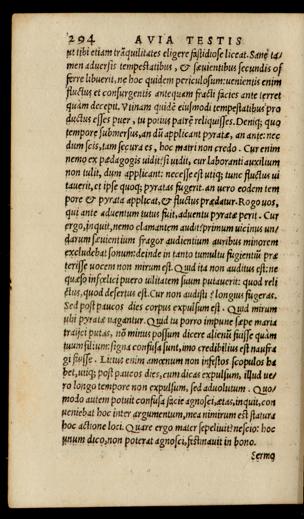 294 AVIA TESTIS
ut tibi etiam trãquilitates eligere fastidiose liceat. Sanè ta-
men aduersis tempestatibus, & sæuientibus secundis of
ferre libuerit, ne hoc quidem periculosum: uenientis enim
fluctus et consurgentis antequam fracti facies ante terret
quàm decepit. Vtinam quidẽ eiusmodi tempestatibus pro
ductus esses puer, tu potius patrẽ reliquisses. Deniq; quo
tempore submersus, an dũ applicant pyratæ, an ante: nec
dum scis, tam secura es, hoc matri non credo. Cur enim
nemo ex pædagogis uidit: si uidit, cur laboranti auxilium
non tulit, dum applicant: necesse est utiq; tunc fluctus ui
tauerit, et ipse quoq; pyratas fugerit. an uero eodem tem
pore & pyrata applicat, & fluctus prædatur. Rogo uos,
qui ante aduentum tutus fuit, aduentu pyratæ perit. Cur
ergo, inquit, nemo clamantem audit: primum uicinus un-
darum sæuientium fragor audientium auribus minorem
excludebat sonum: deinde in tanto tumultu fugientiũ præ
terisse uocem non mirum est. Quid ita non auditus est: ne
quæso infœlici puero uilitatem suum putauerit: quod reli
ctus, quod desertus est. Cur non audisti: longius fugeras.
Sed post paucos dies corpus expulsum est. Quid mirum
ubi pyratæ nagantur. Quid tu porro impune sæpe maria
traijci putas, nõ minus possum dicere alienũ fuisse quàm
tuum filium: signa confusa sunt, imo credibilius est naufra
gi fuisse. Litus enim amœnum non infestos scopulos ha
bet, utiq; post paucos dies, cum dicas expulsum, illud ue-
ro longo tempore non expulsum, sed aduolutum. Quo-
modo autem potuit confusa facie agnosci, ætas, inquit, con
ueniebat hoc inter argumentum, mea nimirum est statura
hoc actione loci. Quare ergo mater sepeliuit: nescio: hoc
unum dico, non poterat agnosci, festinauit in bono.
Sermo